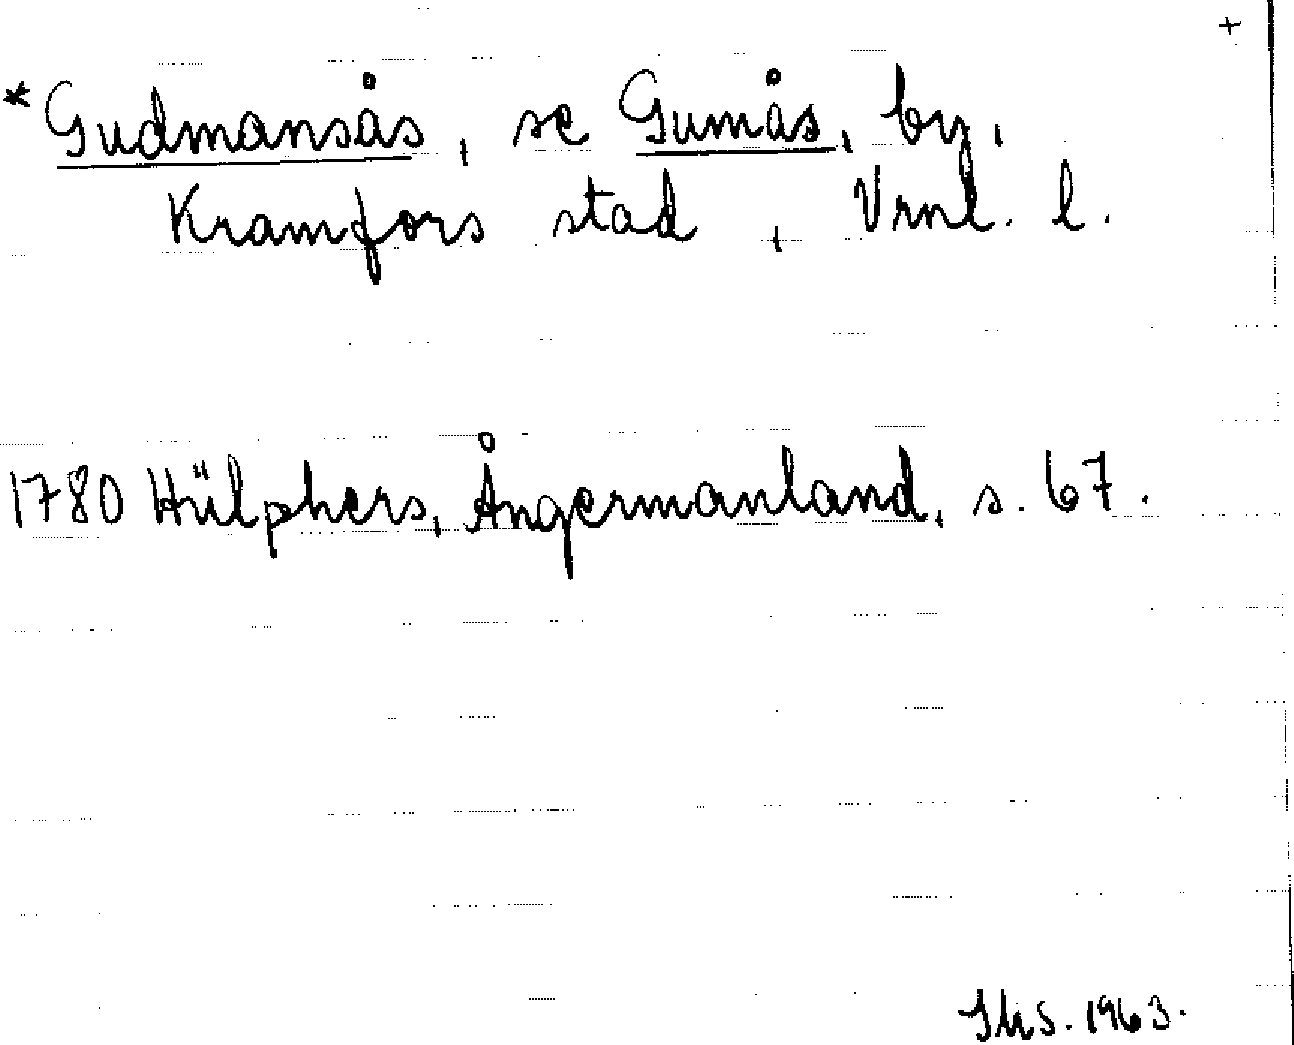 +
* Gudmansås, se Gumås, by,
Kramfors stad, Vrnl. l.
1780 Hülphers, Ångermanland, s. 67.
1963.